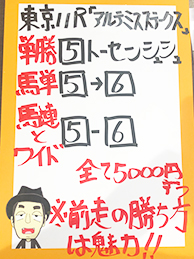 東京11R「アルテミスステークス」
単勝 5 トーセンシュシュ
馬単 5→6
馬連とワイド 5-6
全て5000円ずつ
※前走の勝ち方
は魅力!!